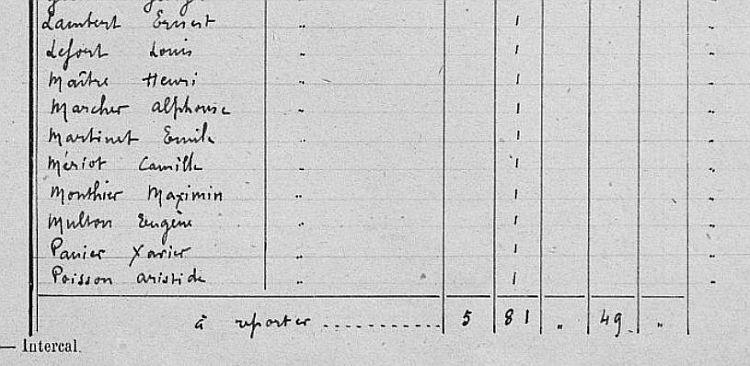 Lambert Ernest " 1 "
Lefort Louis " 1 "
Maître Henri " 1 "
Marcher alphonse " 1 "
Martinet Emile " 1 "
Mériot Camille " 1 "
Monthier Maximin " 1 "
Multon Eugène " 1 "
Panier Xavier " 1 "
Poisson aristide " 1 "
à reporter .......... 5 81 " 49 "
— Intercal.